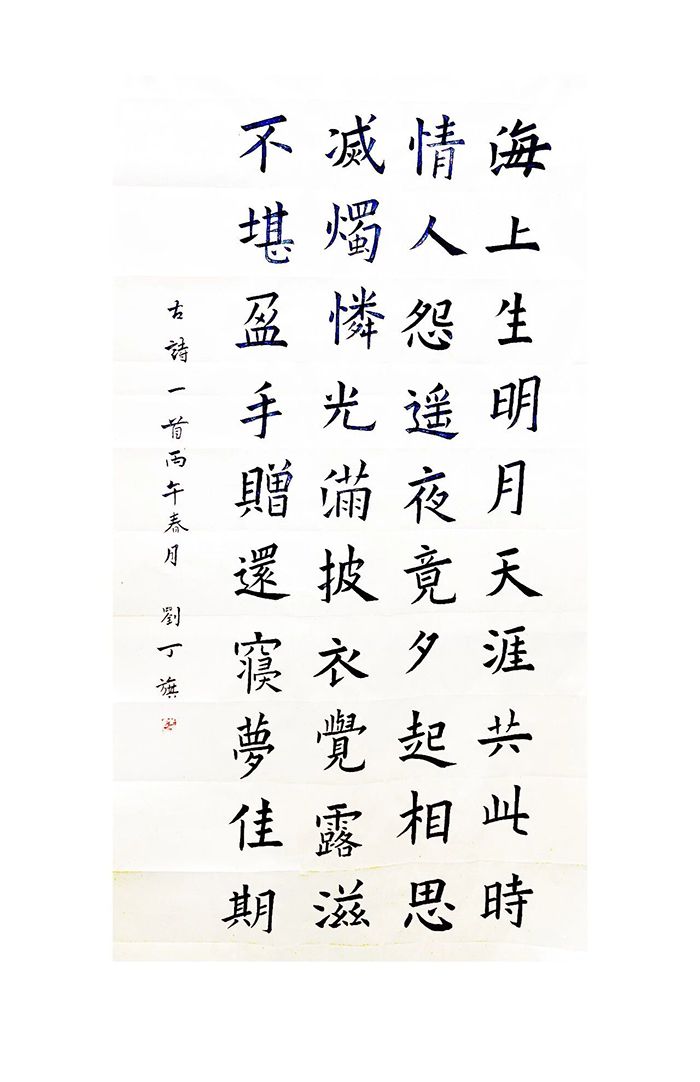 海上生明月天涯共此時
情人怨遥夜竟夕起相思
滅燭憐光滿披衣覺露滋
不堪盈手贈還寢夢佳期
古詩一首丙午春月 劉丁旗